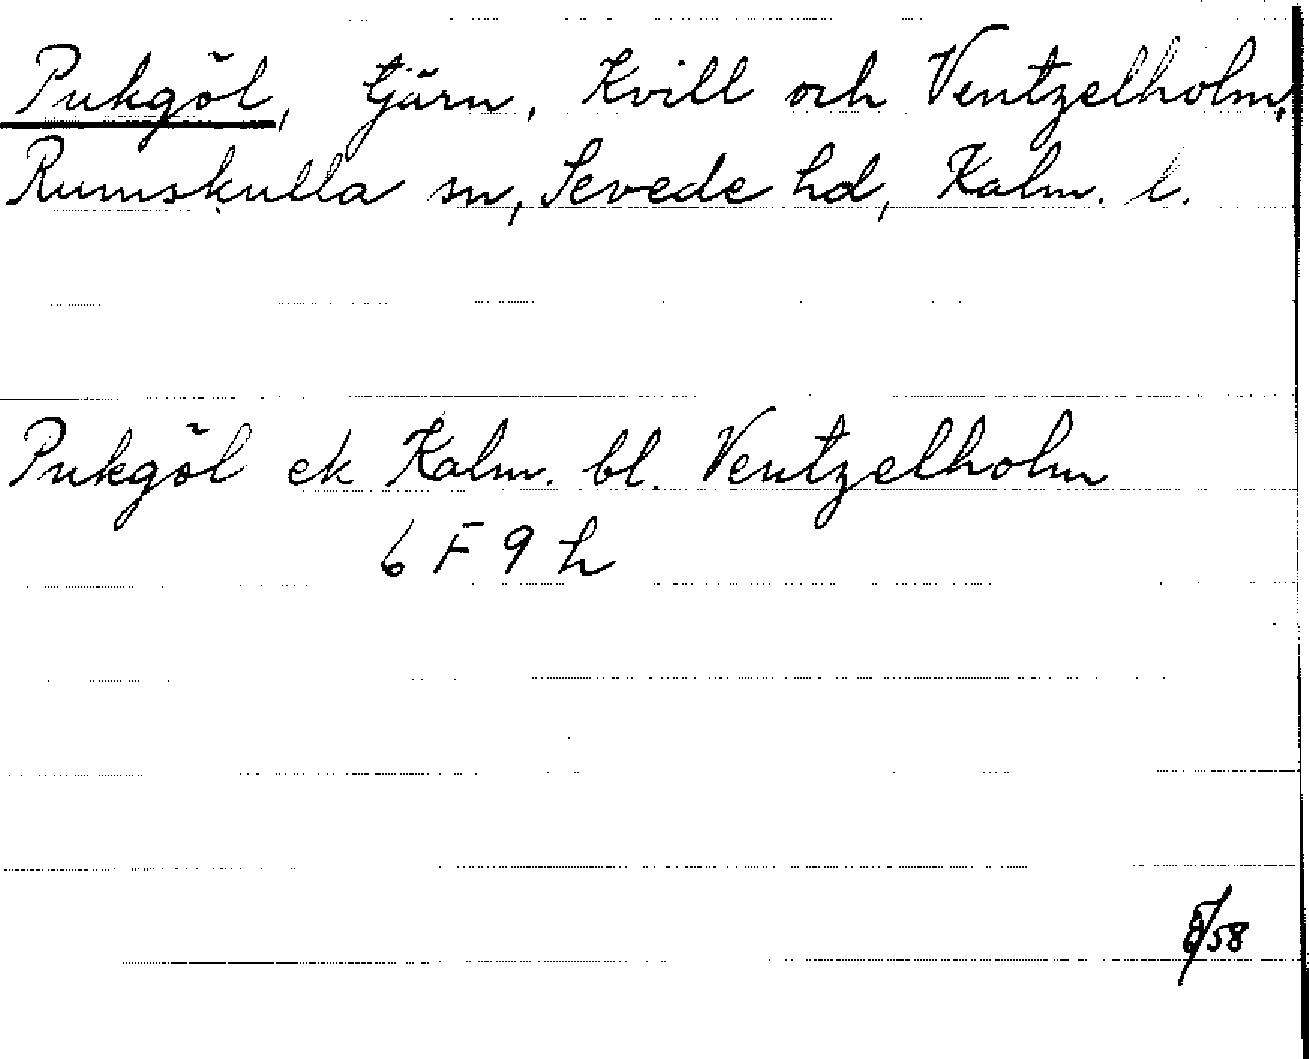 Pukgöl, tjärn, Kvill och Ventzelholm,
Rumskulla sn, Sevede hd, Kalm. l.
Pukgöl ek Kalm. bl. Ventzelholm
6 F 9 h